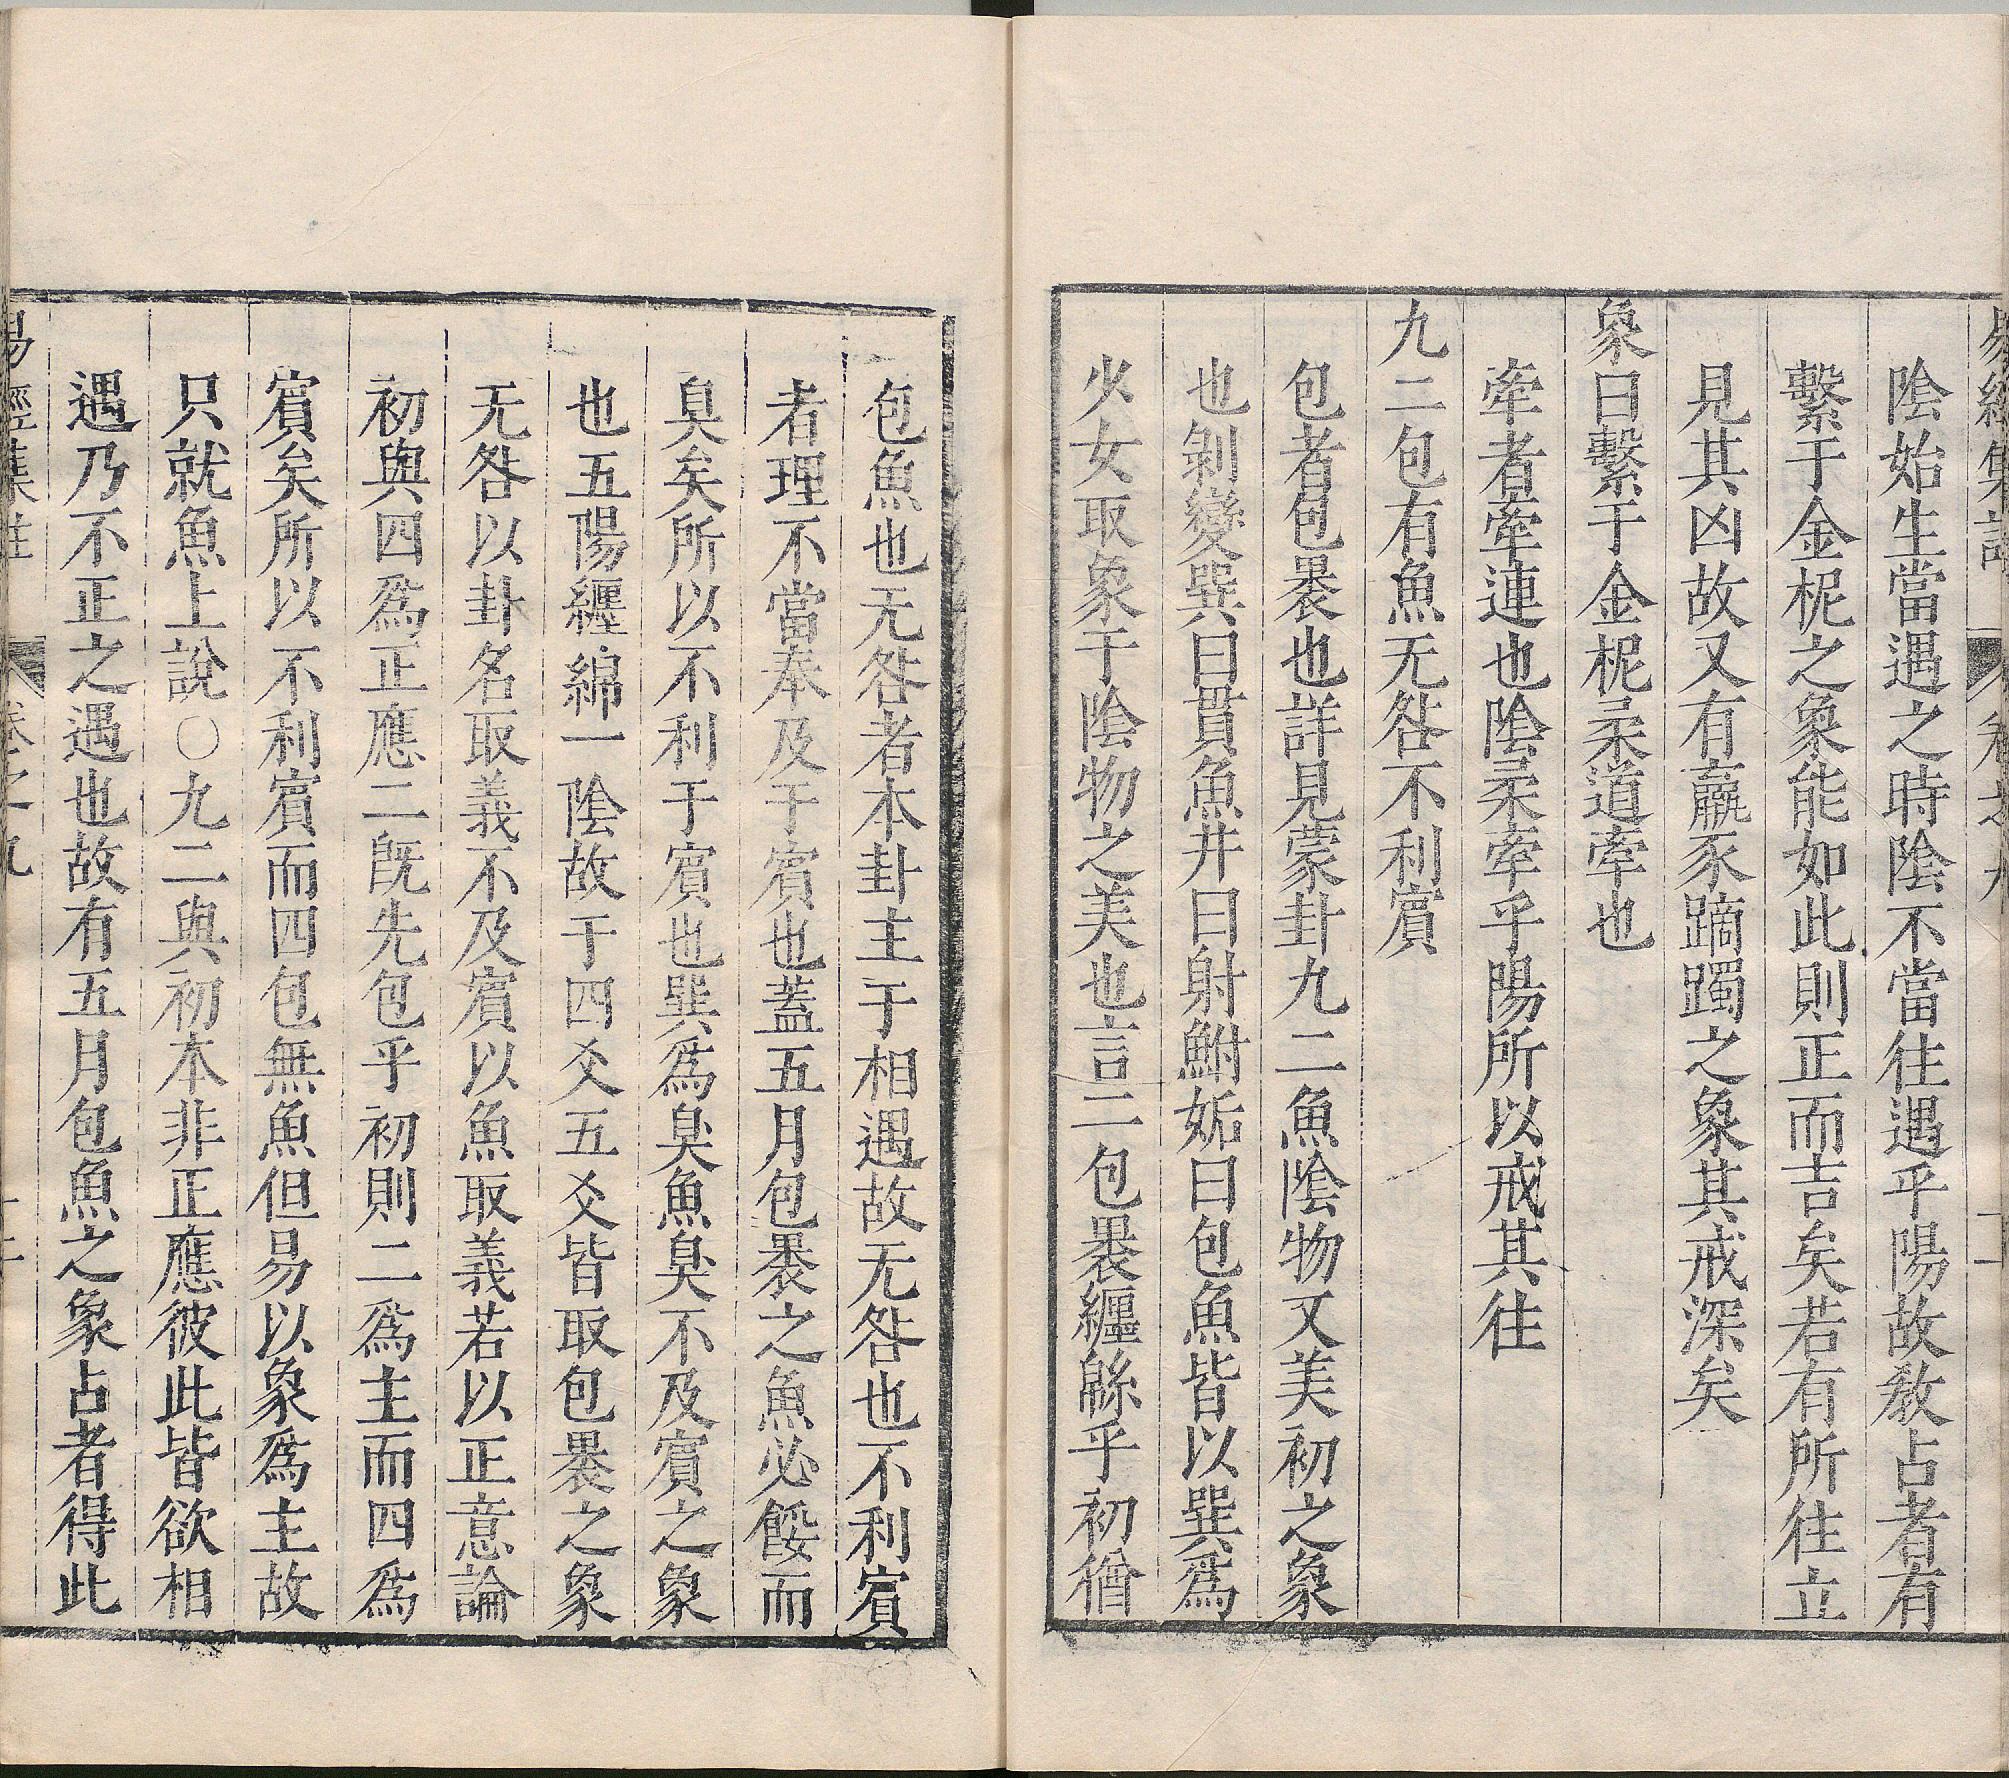 陰始生當遇之時陰不當往遇乎陽故敎占者有
繫于金柅之象能如此則正而吉矣若有所往立
見其凶故又有羸豕蹢躅之象其戒深矣
象曰繫于金柅柔道牽也
牽者牽連也陰柔牽乎陽所以戒其往
九二包有魚无咎不利賓
包者包裹也詳見蒙卦九二魚陰物又美初之象
也剝變巽曰貫魚井曰射鮒姤曰包魚皆以巽爲
少女取象于陰物之美也言二包裹纏綿乎初猶
包魚也无咎者本卦主于相遇故无咎也不利賓
者理不當奉及于賓也蓋五月包裹之魚必餒而
臭矣所以不利于賓也巽爲臭魚臭不及賓之象
也五陽纏綿一陰故于四爻五爻皆取包裹之象
无咎以卦名取義不及賓以魚取義若以正意論
初與四爲正應二既先包乎初則二爲主而四爲
賓矣所以不利賓而四包無魚但易以象爲主故
只就魚上說○九二與初本非正應彼此皆欲相
遇乃不正之遇也故有五月包魚之象占者得此
易經集註 卷之九